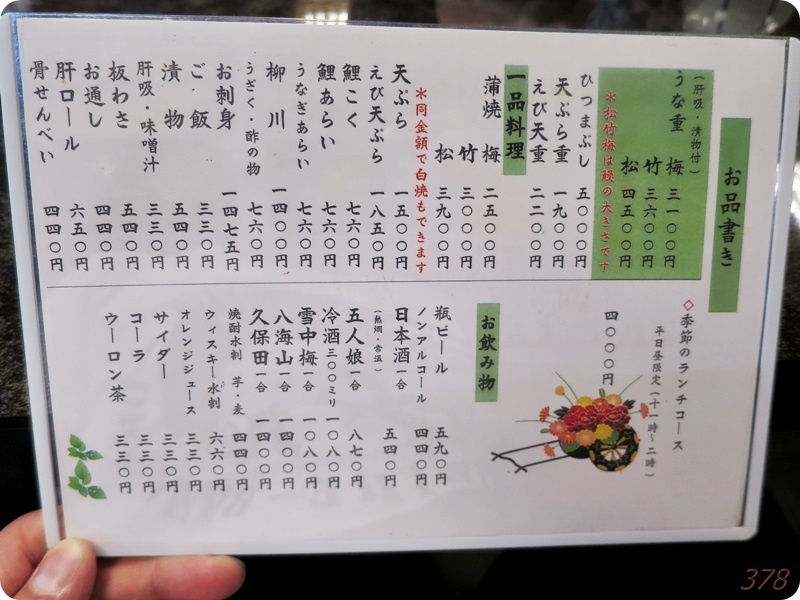 お品書き
(肝吸・漬物付)
うな重 梅 三一〇〇円
竹 三六〇〇円
松 四五〇〇円
*松竹梅は鰻の大きさです
ひつまぶし 五〇〇〇円
天ぷら重 一九〇〇円
えび天重 二二〇〇円
一品料理
蒲焼 梅 二五〇〇円
竹 三〇〇〇円
松 三九〇〇円
*同金額で白焼もできます
天ぷら 一五〇〇円
えび天ぷら 一八五〇円
鯉こく 七六〇円
鯉あらい 七六〇円
うなぎあらい 七六〇円
柳川 一四〇〇円
うざく・酢の物 七六〇円
お刺身 一四七五円
ご飯 三三〇円
漬物 五四〇円
肝吸・味噌汁 三三〇円
板わさ 五四〇円
お通し 四四〇円
肝ロール 六五〇円
骨せんべい 四四〇円
◇季節のランチコース
平日昼限定(十一時~二時)
四〇〇〇円
お飲み物
瓶ビール 五九〇円
ノンアルコール 四四〇円
日本酒一合 五四〇円
(熱燗・常温)
五人娘一合 八七〇円
冷酒三〇〇ミリ 一〇八〇円
雪中梅一合 一〇八〇円
八海山一合 一四〇〇円
久保田一合 一四〇〇円
焼酎水割 芋・麦 四四〇円
ウィスキー水割 六六〇円
オレンジジュース 三三〇円
サイダー 三三〇円
コーラ 三三〇円
ウーロン茶 三三〇円
378